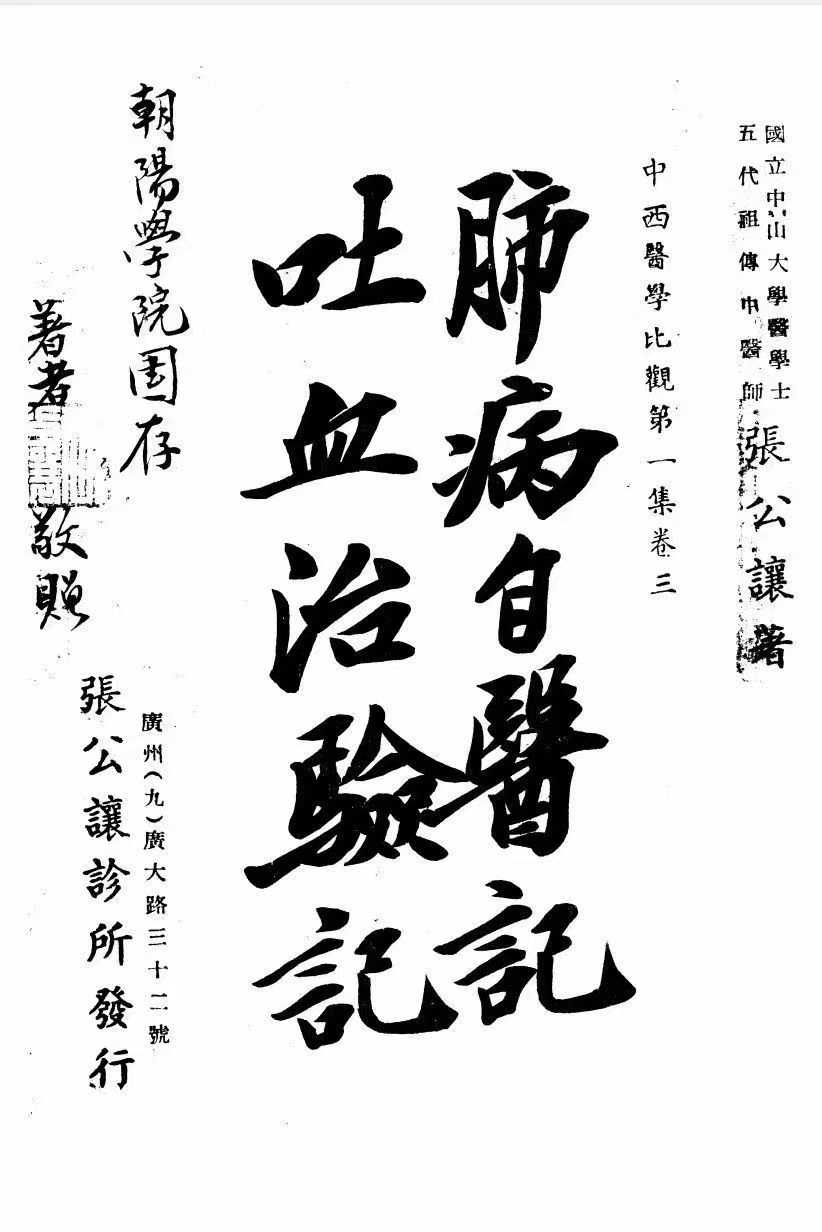 國立中山大學醫學士
五代祖傳中醫師
張公讓著
中西醫學比觀第一集卷三
肺病自醫記
吐血治驗記
朝陽學院圕存
著者
敬贈
廣州(九)廣大路三十二號
張公讓診所發行